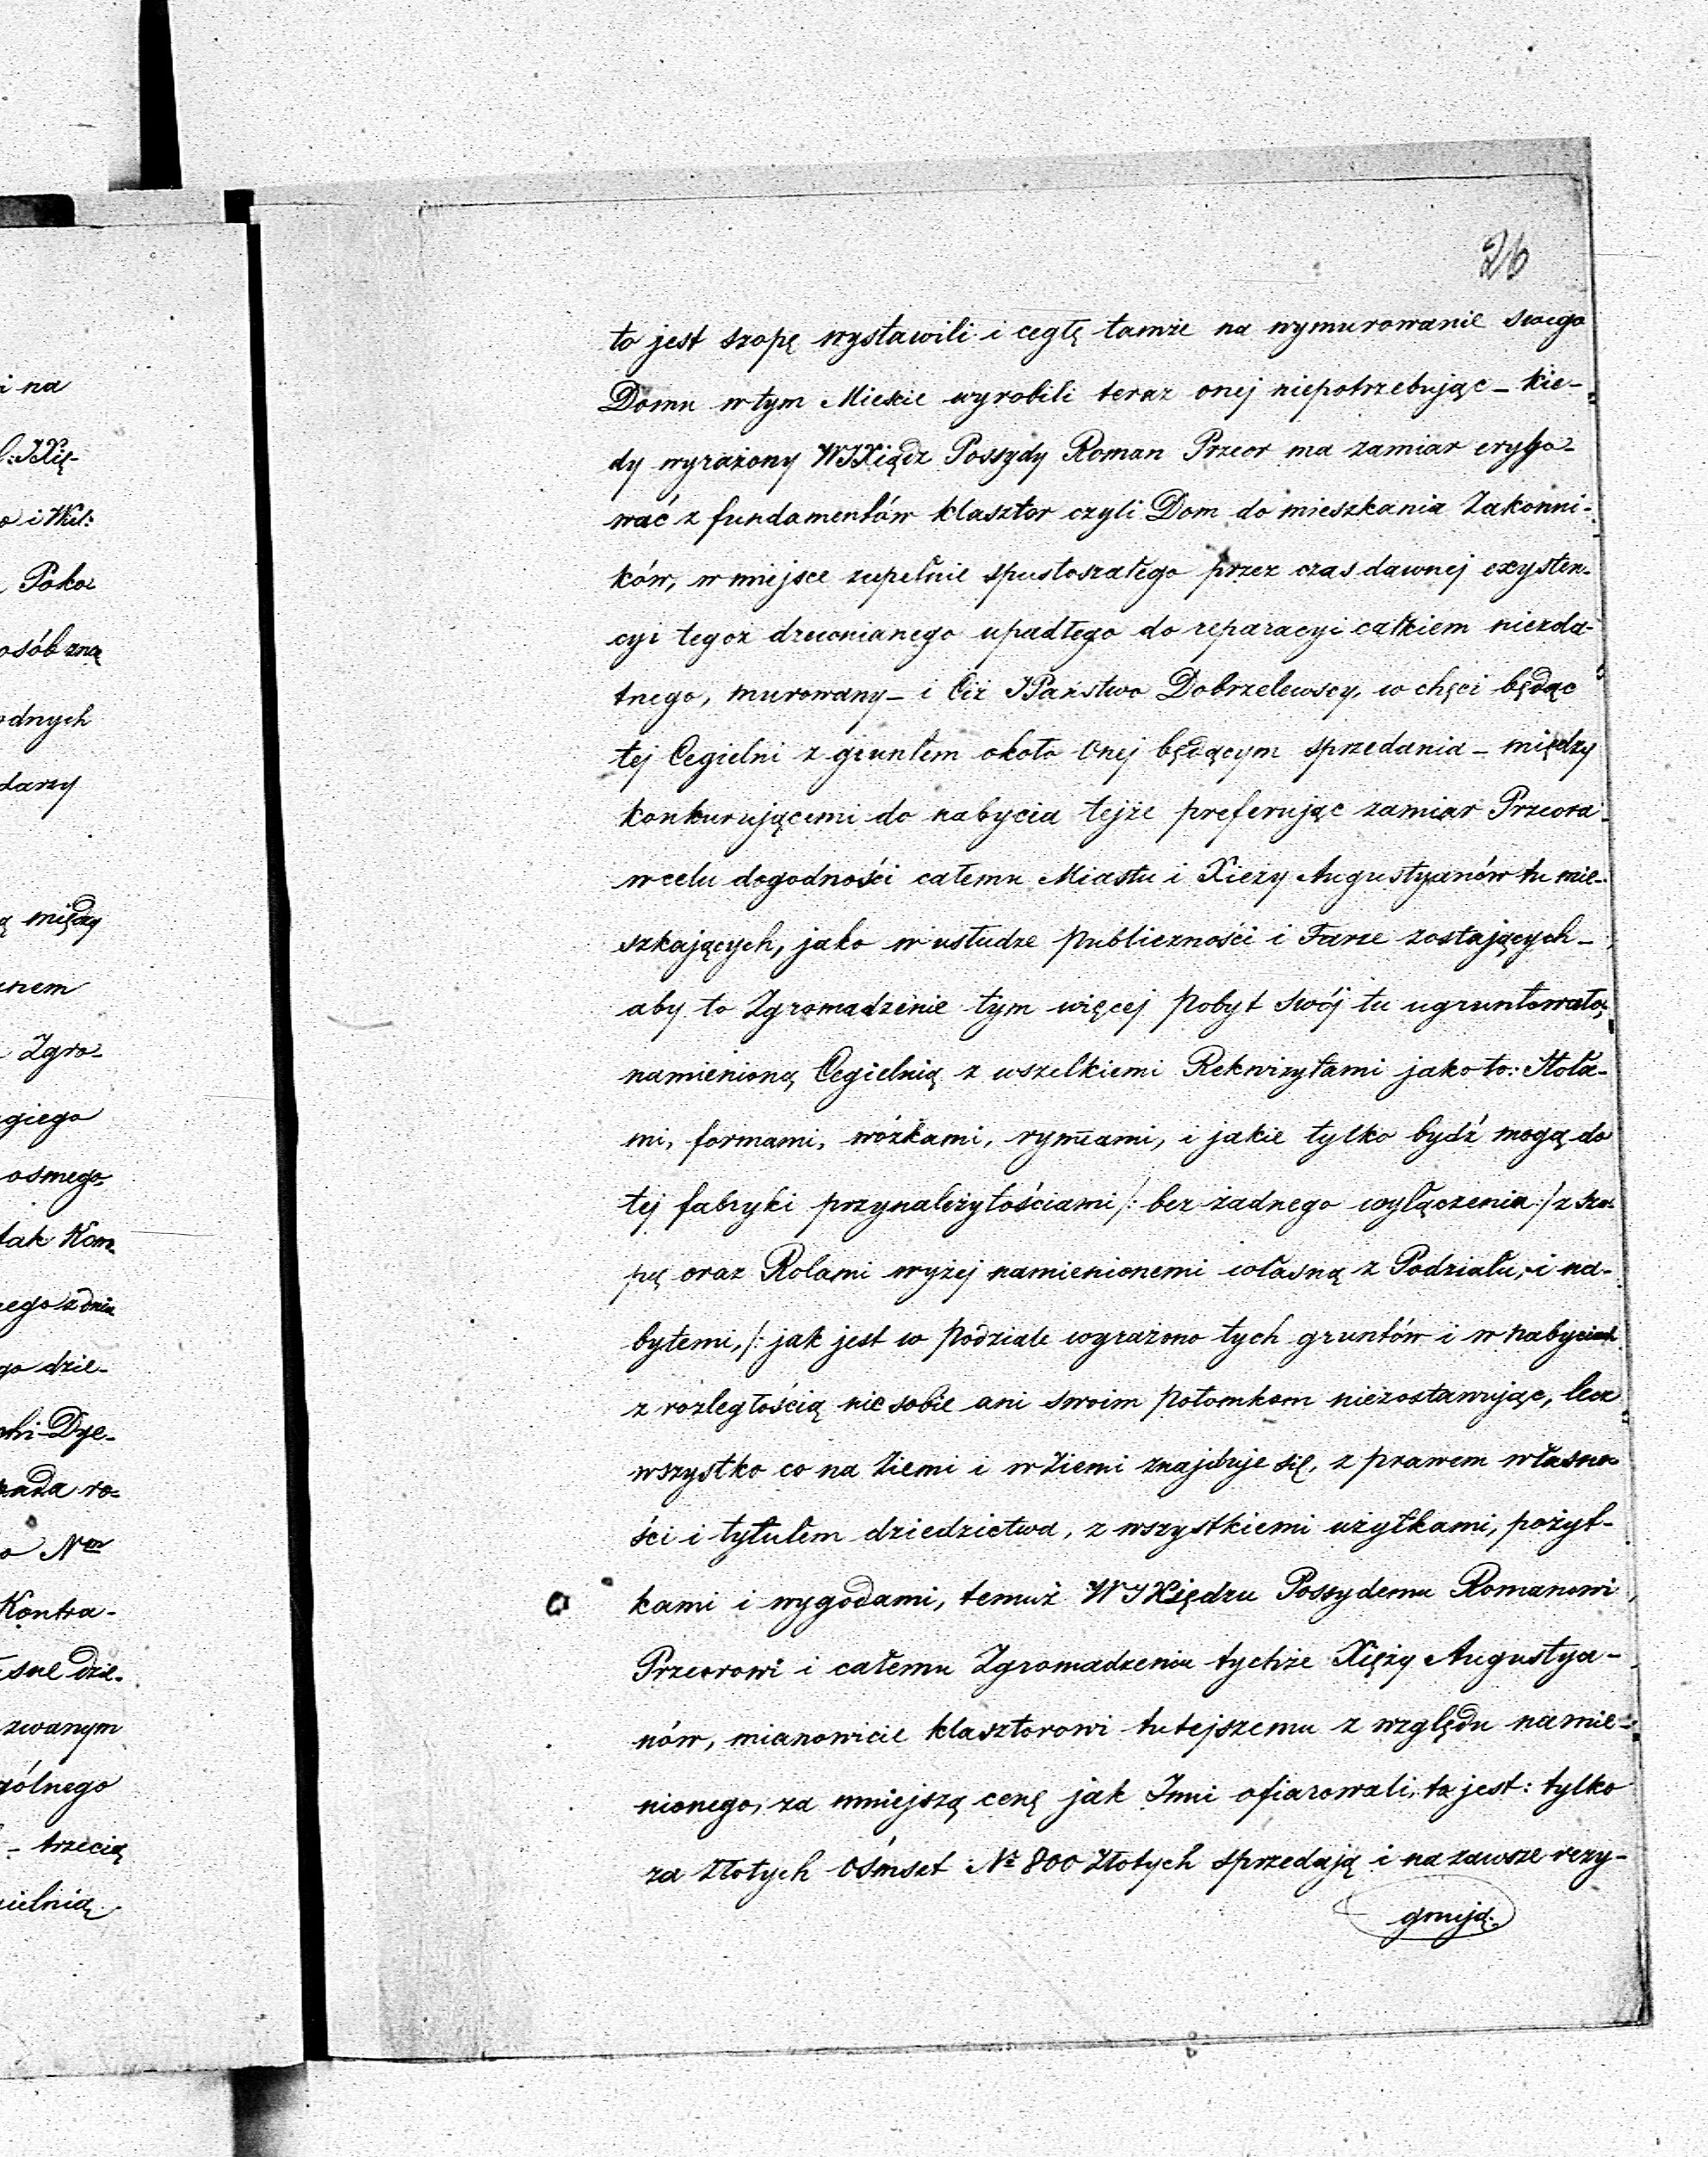 26
to jest szopę wystawili i cegłę tamże na wymurowanie swego
Domu w tym Mieście wyrobili teraz onej niepotrzebując – kie-
dy wyrażony WJXiądz Possydy Roman Przeor ma zamiar erygo-
wać z fundamentów klasztor czyli Dom do mieszkania Zakonni-
ków, w miejsce zupełnie spustoszałego przez czas dawnej exysten-
cyi tegoż drewnianego upadłego do reparacyi całkiem niezda-
tnego, murowany – i Ciż JPaństwo Dobrzelewscy, w chęci będąc
tej Cegielni z gruntem około Onej będącym sprzedania – między
konkurującemi do nabycia tejże preferując zamiar Przeora
w celu dogodności całemu Miastu i Xieży Augustyanów tu mie-
szkających, jako w usłudze Publiczności i Farze zostających –
aby to Zgromadzenie tym więcej Pobyt swój tu ugruntowało,
namienioną Cegielnią z wszelkiemi Rekwizytami jako to: Stoła-
mi, formami, wózkami, rymami, i jakie tylko bydź mogą do
tej fabryki przynależytościami /: bez żadnego wyłączenia :/ z szo-
pą oraz Rolami wyżej namienionemi własną z Podziału, i na-
bytemi, /: jak jest w Podziale wyrażono tych gruntów i w nabyciach
z rozległością nic sobie ani swoim Potomkom niezostawując, lecz
wszystko co na Ziemi i w Ziemi znajduje się, z prawem własno-
ści i tytułem dziedzictwa, z wszystkiemi użytkami, pożyt-
kami i wygodami, temuż WJXiędzu Possydemu Romanowi
Przeorowi i całemu Zgromadzeniu tychże Xięży Augustya-
nów, mianowicie klasztorowi tutejszemu z względu namie-
nionego, za mniejszą cenę jak Inni ofiarowali, to jest: tylko
za Złotych Ośmset № 800 Złotych sprzedają i na zawsze rezy-
gnują.
i na
Poko
osób zna
odnych
darzy
między
Zgro-
giego
osmego
tak Kon-
go dzie-
Kontra-
zwanym
gólnego
– trzecią